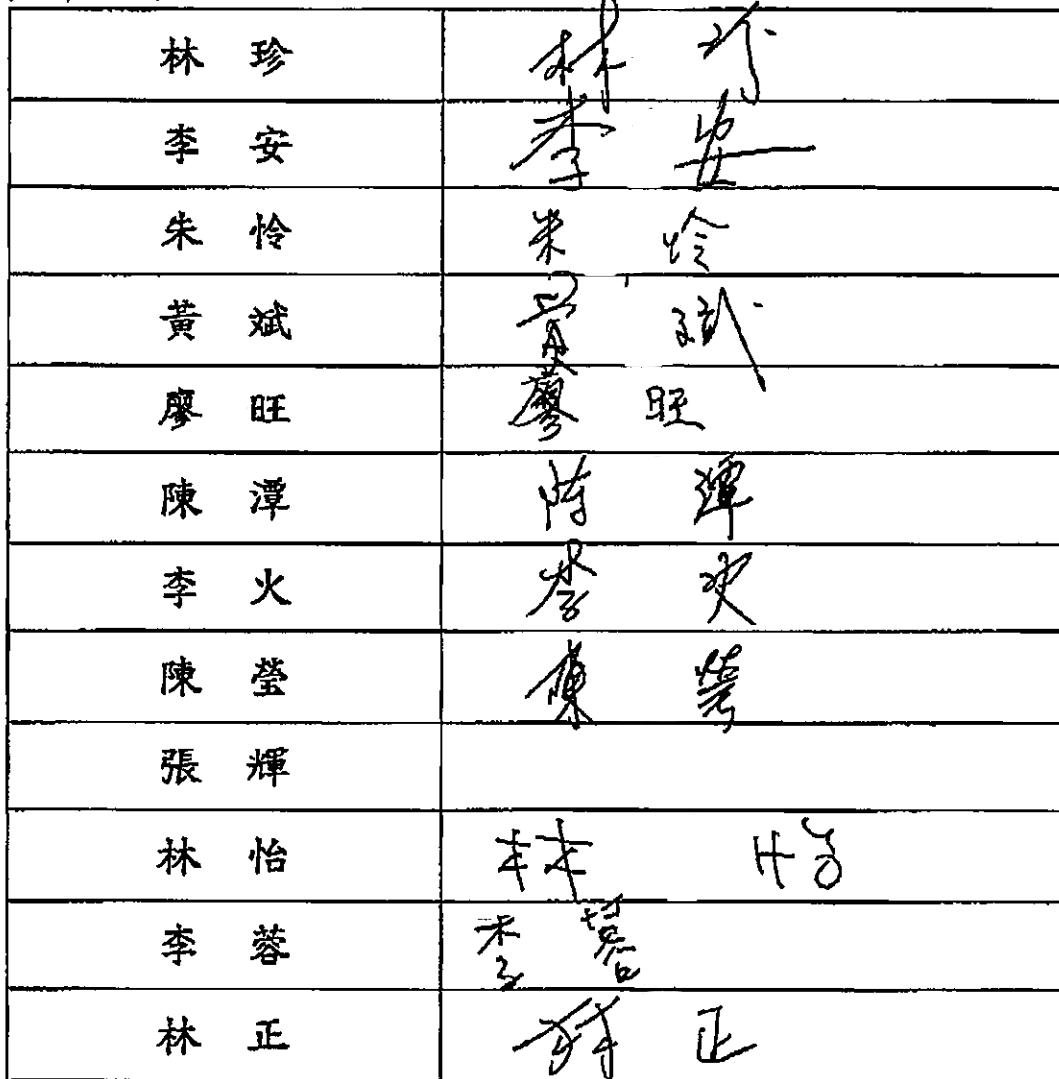 林珍 林珍
李安 李安
朱怜 朱怜
黃斌 黃斌
廖旺 廖旺
陳潭 陳潭
李火 李火
陳瑩 陳瑩
張輝
林怡 林怡
李蓉 李蓉
林正 林正